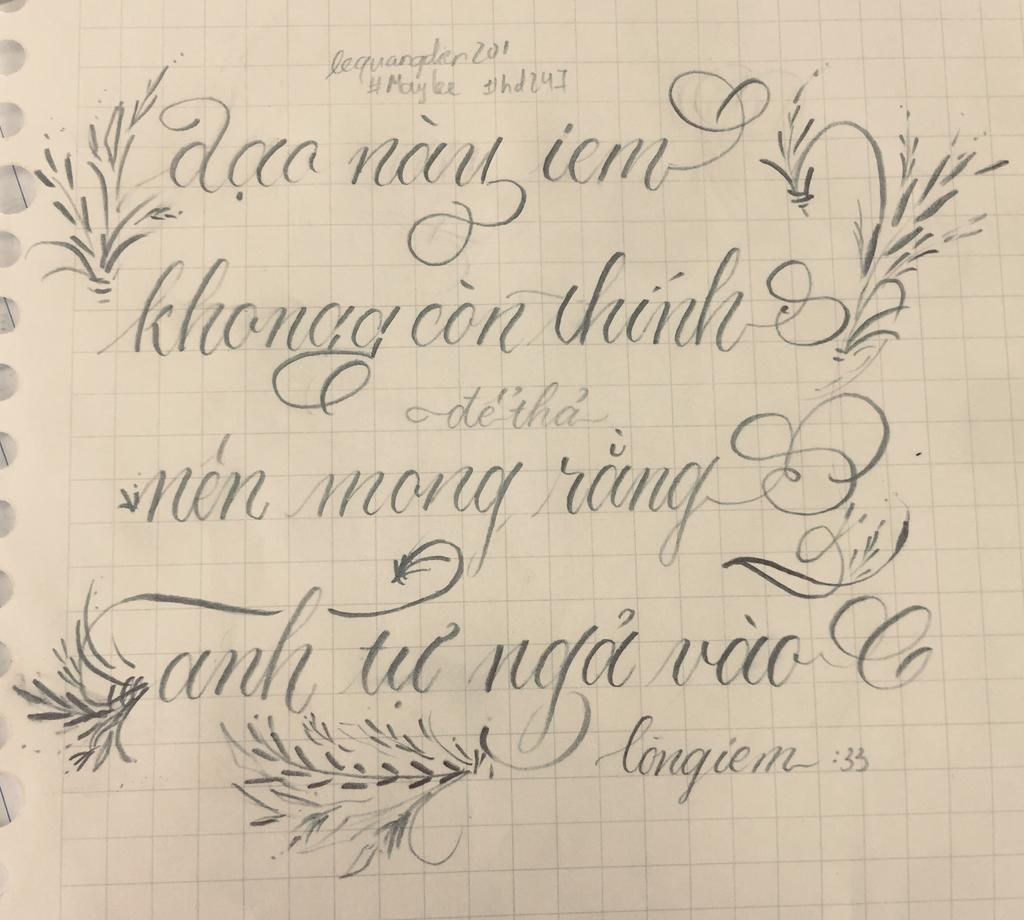 lequangdien201
#Maybee #hd247
dạo này iem
không còn thính
để thả
nên mong rằng
anh tự ngả vào
lòng iem :33